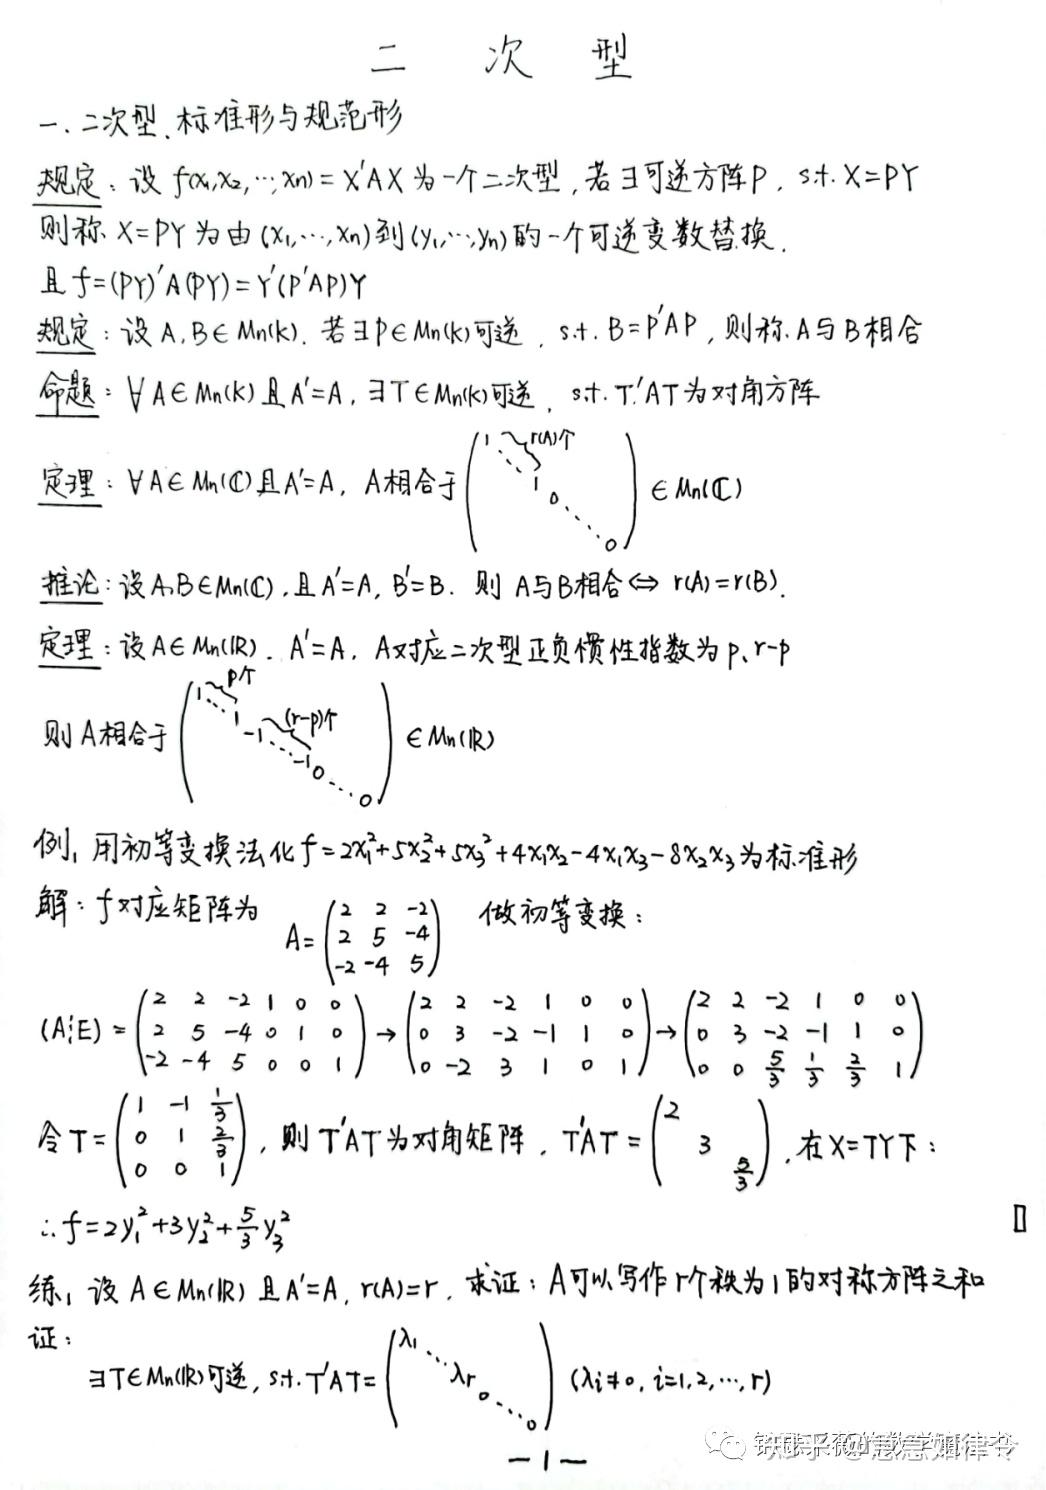 二 次 型
一. 二次型、标准形与规范形
规定: 设 f(x₁,x₂,…,xₙ) = X'AX 为一个二次型, 若∃可逆方阵P, s.t. X=PY
则称 X=PY 为由 (x₁,…,xₙ) 到 (y₁,…,yₙ) 的一个可逆变数替换.
且 f=(PY)'A(PY)=Y'(P'AP)Y
规定: 设 A,B∈Mn(K). 若∃P∈Mn(K)可逆, s.t. B=P'AP, 则称 A与B相合
命题: ∀A∈Mn(K)且A'=A, ∃T∈Mn(K)可逆, s.t. T'AT为对角方阵
定理: ∀A∈Mn(ℂ)且A'=A, A相合于 (1 ⋱ 1 0 ⋱ 0) r(A)个 ∈Mn(ℂ)
推论: 设A,B∈Mn(ℂ),且A'=A, B'=B. 则 A与B相合⇔ r(A)=r(B).
定理: 设A∈Mn(ℝ). A'=A, A对应二次型正负惯性指数为p、r-p
则A相合于 (1 ⋱ 1 -1 ⋱ -1 0 ⋱ 0) p个 (r-p)个 ∈Mn(ℝ)
例1 用初等变换法化 f=2x₁²+5x₂²+5x₃²+4x₁x₂-4x₁x₃-8x₂x₃为标准形
解: f对应矩阵为 A= (2 2 -2; 2 5 -4; -2 -4 5) 做初等变换:
(A¦E) = (2 2 -2 1 0 0; 2 5 -4 0 1 0; -2 -4 5 0 0 1) → (2 2 -2 1 0 0; 0 3 -2 -1 1 0; 0 -2 3 1 0 1) → (2 2 -2 1 0 0; 0 3 -2 -1 1 0; 0 0 5/3 1/3 2/3 1)
令T= (1 -1 1/3; 0 1 2/3; 0 0 1), 则T'AT为对角矩阵, T'AT = (2 3 5/3), 在X=TY下:
∴f=2y₁²+3y₂²+5/3y₃² ▯
练1 设A∈Mn(ℝ)且A'=A, r(A)=r. 求证: A可以写作r个秩为1的对称方阵之和
证:
∃T∈Mn(ℝ)可逆, s.t. T'AT= (λ₁ ⋱ λr 0 ⋱ 0) (λi≠0, i=1,2,…,r)
—1—